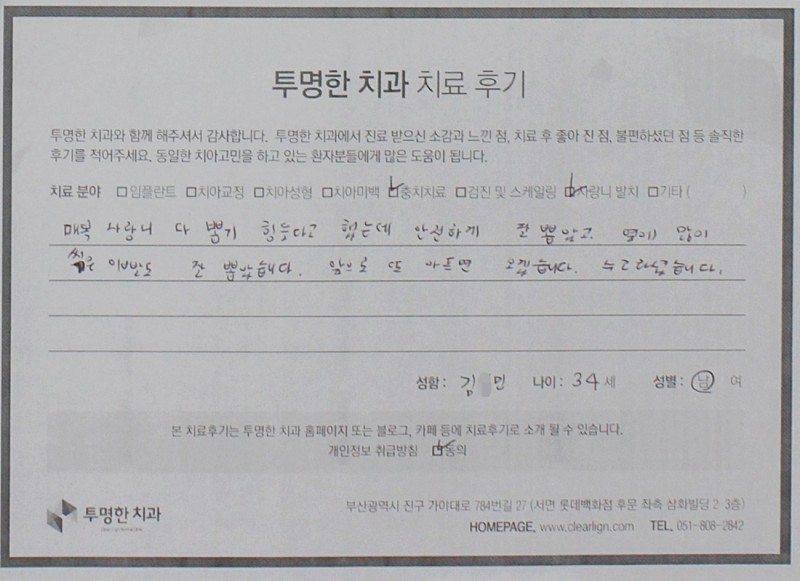 투명한 치과 치료 후기
투명한 치과와 함께 해주셔서 감사합니다. 투명한 치과에서 진료 받으신 소감과 느낀 점, 치료 후 좋아 진 점, 불편하셨던 점 등 솔직한
후기를 적어주세요. 동일한 치아고민을 하고 있는 환자분들에게 많은 도움이 됩니다.
치료 분야 □임플란트 □치아교정 □치아성형 □치아미백 ☑충치치료 □검진 및 스케일링 ☑사랑니 발치 □기타 ( )
매복 사랑니 다 뽑기 힘든다고 했는데 안전하게 잘 뽑았고 옆에 많이
썩은 이빨도 잘 뽑았습니다. 앞으로 또 아프면 오겠습니다.
성함: 김 민 나이: 34세 성별: 남 여
본 치료후기는 투명한 치과 홈페이지 또는 블로그, 카페 등에 치료후기로 소개 될 수 있습니다.
개인정보 취급방침 ☑동의
부산광역시 진구 가야대로 784번길 27 (서면 롯데백화점 후문 좌측 삼화빌딩 2·3층)
투명한 치과
HOMEPAGE. www.clearlign.com TEL. 051-808-2842